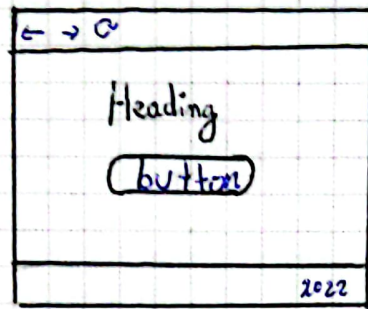 ← → C
Heading
button
2022